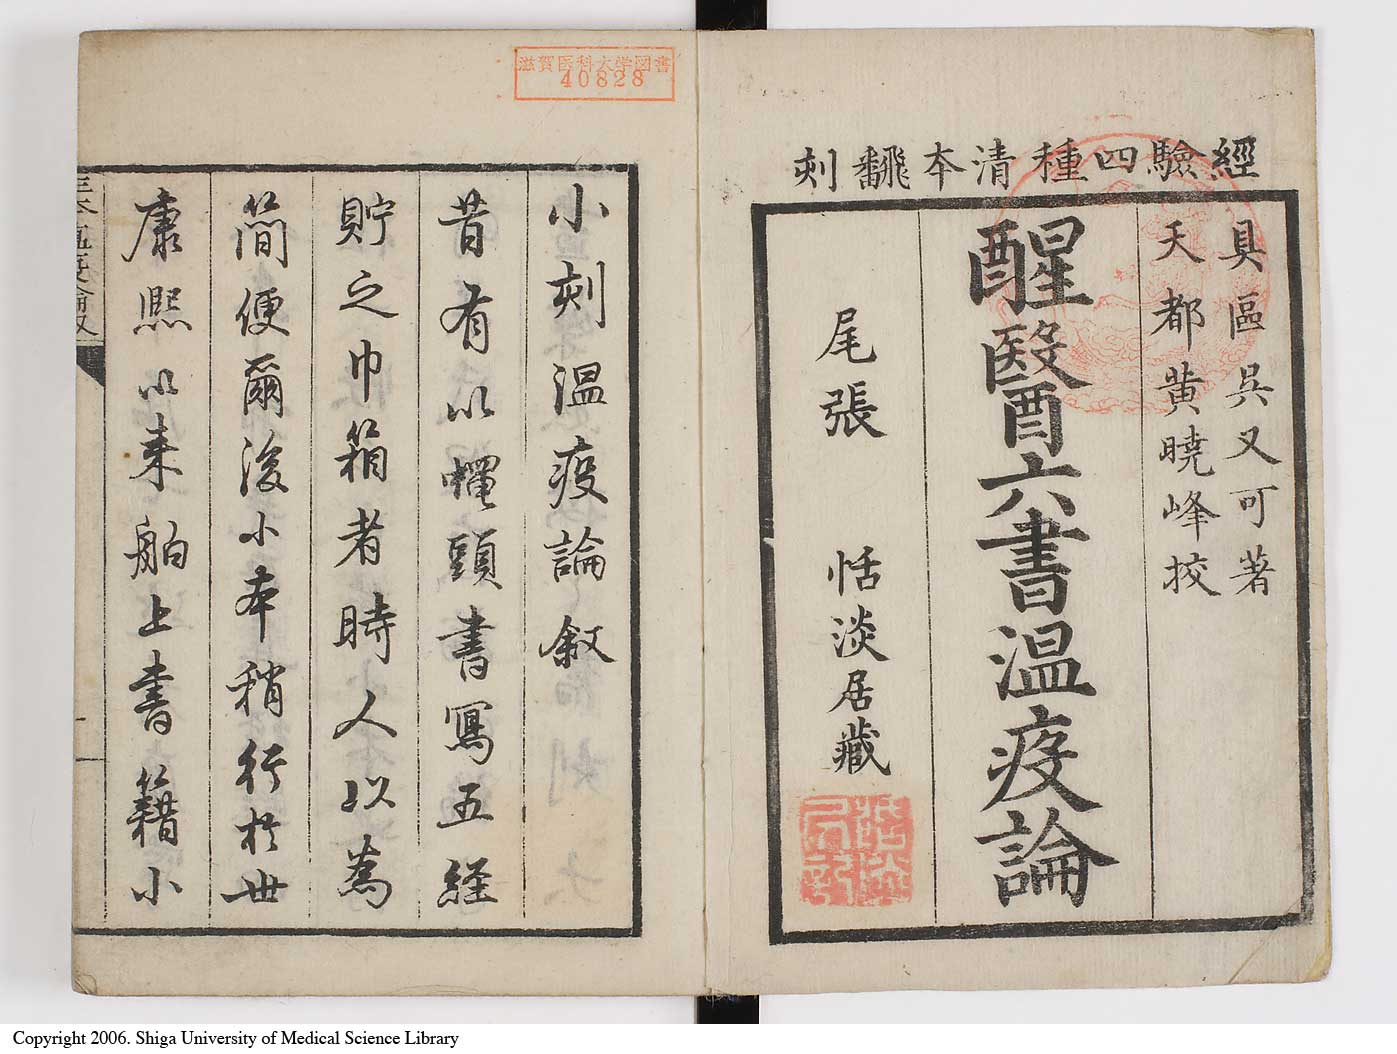 經驗四種清本飜刻
具區吳又可著
天都黄曉峰挍
醒醫六書温疫論
尾張 恬淡居藏
滋賀医科大学図書
40828
小刻温疫論叙
昔有以蠅頭書寫五經
貯之巾箱者時人以為
簡便爾後小本稍行於世
康熙以来舶上書籍小
Copyright 2006. Shiga University of Medical Science Library